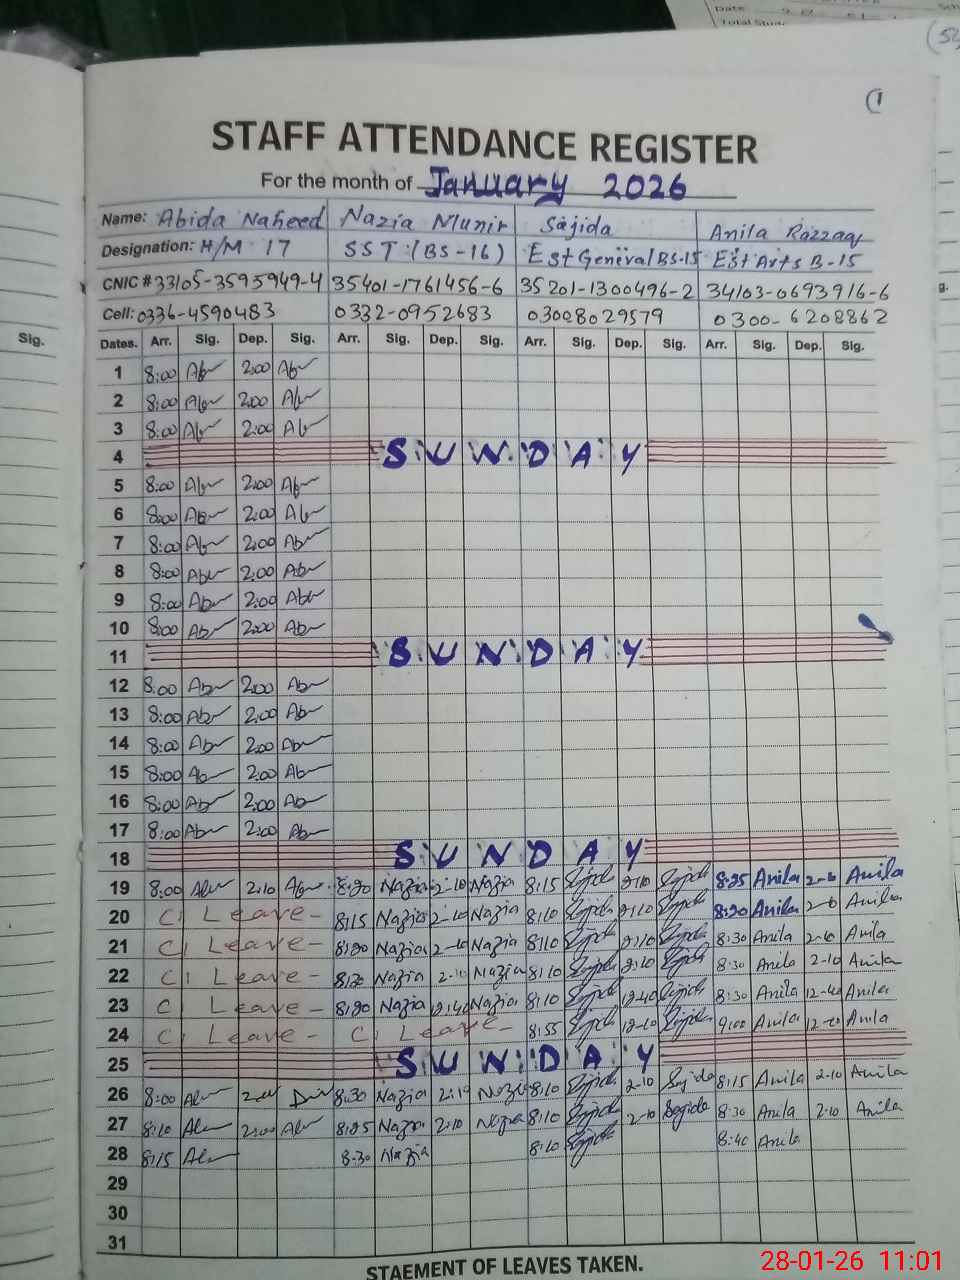 Date
Total Stu
(1
STAFF ATTENDANCE REGISTER
For the month of January 2026
Name: Abida Naheed Nazia Munir Sajida Anila Razzaq
Designation: H/M 17 SST (BS-16) Est General BS-15 Est Arts B-15
CNIC # 33105-3595949-4 35401-1761456-6 35201-1300496-2 34103-0693916-6
Cell: 0336-4590483 0332-0952683 03008029579 0300-6208862
Sig.
Dates. Arr. Sig. Dep. Sig. Arr. Sig. Dep. Sig. Arr. Sig. Dep. Sig. Arr. Sig. Dep. Sig.
1 8:00 2:00
2 8:00 2:00
3 8:00 2:00
4 SUNDAY
5 8:00 2:00
6 8:00 2:00
7 8:00 2:00
8 8:00 2:00
9 8:00 2:00
10 8:00 2:00
11 SUNDAY
12 8:00 2:00
13 8:00 2:00
14 8:00 2:00
15 8:00 2:00
16 8:00 2:00
17 8:00 2:00
18 SUNDAY
19 8:00 2:10 8:20 Nazia 2-10 Nazia 8:15 Sajida 2:10 Sajida 8:25 Anila Anila
20 C/ Leave - 8:15 Nazia 2-10 Nazia 8:10 Sajida 2:10 Sajida 8:20 Anila Anila
21 C/ Leave - 8:20 Nazia 2-10 Nazia 8:10 Sajida 2:10 Sajida 8:30 Anila 2-10 Anila
22 C/ Leave - 8:20 Nazia 2-10 Nazia 8:10 Sajida 2:10 Sajida 8:30 Anila 2-10 Anila
23 C/ Leave - 8:20 Nazia 12:40 Nazia 8:10 Sajida 12-40 Sajida 8:30 Anila 12-40 Anila
24 C/ Leave - C/ Leave - 8:55 Sajida Sajida 9:00 Anila Anila
25 SUNDAY
26 8:00 8:30 Nazia 2:10 Nazia 8:10 Sajida 2-10 Sajida 8:15 Anila 2-10 Anila
27 8:10 2:00 8:25 Nazia 2:10 Nazia 8:10 Sajida 2-10 Sajida 8:30 Anila 2-10 Anila
28 8:15 8-30 Nazia 8:10 Sajida 8:40 Anila
29
30
31
STAEMENT OF LEAVES TAKEN.
28-01-26 11:01